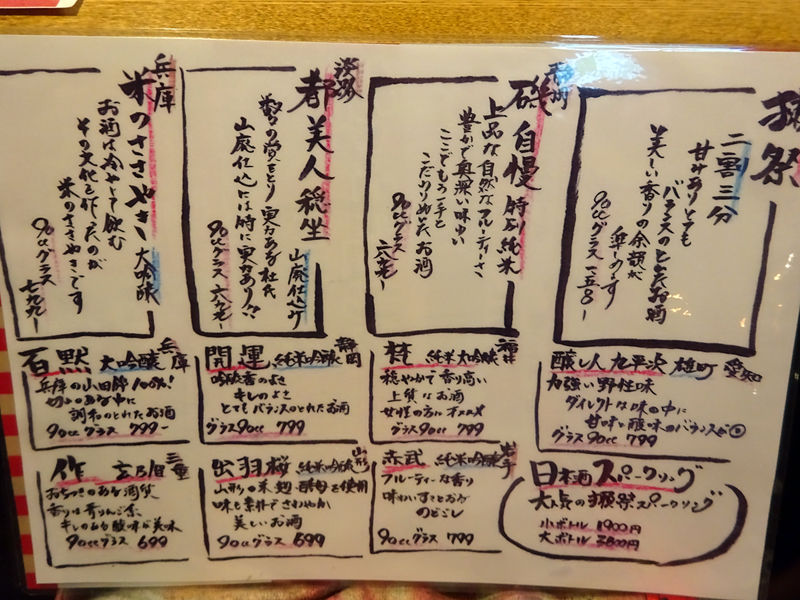 獺祭
二割三分
甘みありとても
バランスのとれたお酒
美しい香りの余韻が
楽しめます
90ccグラス 一五八〇
静岡
磯自慢 特別純米
上品な自然なフルーティーさ
豊かで奥深い味わい
ここでもう一手と
こだわりぬいたお酒
90ccグラス 六九九ー
淡路
都美人 穏坐 山廃仕込み
数々の賞をとり実力ある杜氏
山廃仕込には特に実力あり!!
90ccグラス 六九九ー
兵庫
米のささやき 大吟醸
お酒は冷やして飲む
その文化を作ったのが
米のささやきです
90ccグラス 七九九ー
醸し人九平次 雄町 愛知
力強い野性味
ダイレクトな味の中に
甘味と酸味のバランスが◎
グラス90cc 799
梵 純米大吟醸 福井
穏やかで香り高い
上質なお酒
女性の方にオススメ
グラス90cc 799
開運 純米吟醸 静岡
吟醸香のよさ
キレのよさ
とてもバランスのとれたお酒
グラス90cc 799
百黙 大吟醸 兵庫
兵庫の山田錦100%!
調和のとれたお酒
90ccグラス 799-
日本酒スパークリング
大人気の獺祭スパークリング
小ボトル 1900円
大ボトル 3800円
赤武 純米吟醸 岩手
フルーティーな香り
のどごし
90ccグラス 799
出羽桜 純米吟醸 山形
山形の米 麹 酵母を使用
美しいお酒
90ccグラス 699
作 玄乃智 三重
おちつきのある酒質
香りは青りんご系
キレのある酸味が美味
90ccグラス 699